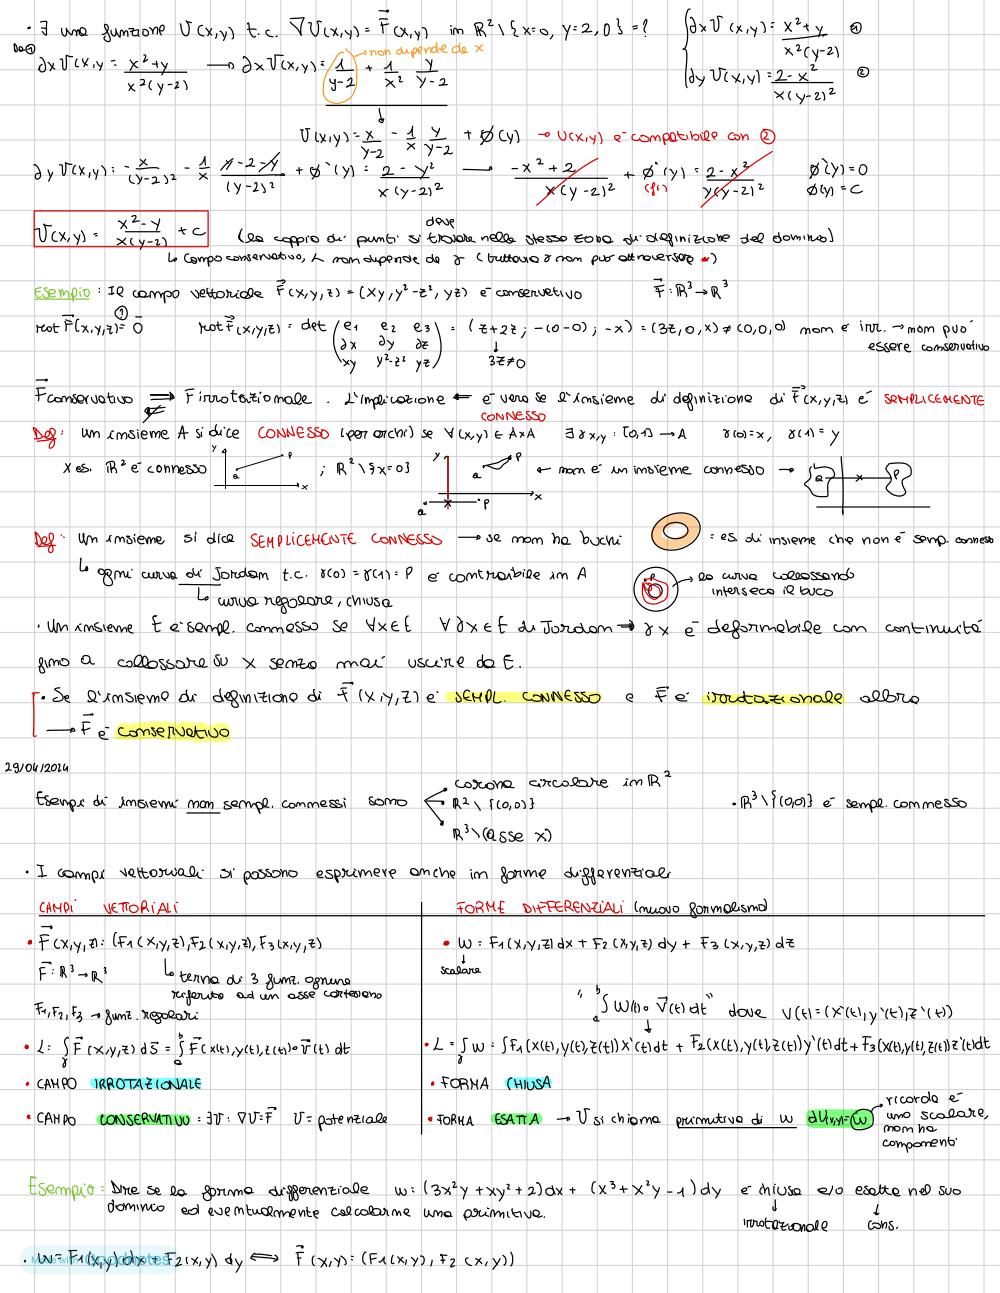 · ∃ una funzione U(x,y) t.c. ∇U(x,y) = F⃗(x,y) in R² \ {x=0, y=2,0} = ?
{ ∂x U(x,y) = x²+y / x²(y-2) ①
∂y U(x,y) = 2-x² / x(y-2)² ②
Da ① ∂x U(x,y) = x²+y / x²(y-2) → ∂x U(x,y) = 1/(y-2) + 1/x² y/(y-2) → non dipende da x
U(x,y) = x/(y-2) - 1/x y/(y-2) + ϕ(y) → U(x,y) è compatibile con ②
∂y U(x,y) = -x/(y-2)² - 1/x (y-2-y)/(y-2)² + ϕ'(y) = 2-y² / x(y-2)² → -x²+2 / x(y-2)² + ϕ'(y) = 2-x² / y(y-2)² ϕ'(y) = 0
ϕ(y) = c
U(x,y) = x²-y / x(y-2) + c (la coppia di punti si deve trovare nella stessa zona di definizione del dominio)
↳ Campo conservativo, L non dipende da γ (tuttavia γ non può attraversare •)
Esempio: Il campo vettoriale F⃗(x,y,z) = (xy, y²-z², yz) è conservativo F⃗: R³ → R³
① rot F⃗(x,y,z) = 0̄ rot F⃗(x,y,z) = det ( e1 e2 e3
∂x ∂y ∂z
xy y²-z² yz ) = (z+2z ; -(0-0) ; -x) = (3z, 0, x) ≠ (0,0,0) non è irr. → non può essere conservativo
↓ 3z≠0
F⃗ conservativo ⟹ F irrotazionale. L'implicazione ⟸ è vera se l'insieme di definizione di F⃗(x,y,z) è SEMPLICEMENTE CONNESSO
Def: un insieme A si dice CONNESSO (per archi) se ∀(x,y) ∈ A×A ∃ γx,y : [0,1] → A γ(0)=x, γ(1)=y
x es. R² è connesso y Q P x ; R² \ {x=0} y Q P x Q P ← non è un insieme connesso → Q P
Def: Un insieme si dice SEMPLICEMENTE CONNESSO → se non ha buchi : es. di insieme che non è semp. connesso
↳ ogni curva di Jordan t.c. γ(0) = γ(1) = P è contraibile in A P → la curva collassando interseca il buco
↳ curva regolare, chiusa
· Un insieme E è sempl. connesso se ∀x∈E ∀γx∈E di Jordan → γx è deformabile con continuità
fino a collassare su x senza mai uscire da E.
· Se l'insieme di definizione di F⃗(x,y,z) è SEMPL. CONNESSO e F⃗ è irrotazionale allora
→ F⃗ è conservativo
29/04/2024
Esempi di insiemi non sempl. connessi sono corona circolare in R²
R² \ {(0,0)} · R³ \ {(0,0)} è sempl. connesso
R³ \ (asse x)
· I campi vettoriali si possono esprimere anche in forme differenziali
CAMPI VETTORIALI FORME DIFFERENZIALI (nuovo formalismo)
• F⃗(x,y,z) : (F1(x,y,z), F2(x,y,z), F3(x,y,z) • ω = F1(x,y,z) dx + F2(x,y,z) dy + F3(x,y,z) dz
F⃗: R³ → R³ ↳ terna di 3 funz. ognuna riferita ad un asse cartesiano ↓ scalare
F1, F2, F3 → funz. regolari " ∫ₐᵇ W(t) ∘ V⃗(t) dt " dove V(t) = (x'(t), y'(t), z'(t))
• L : ∫γ F⃗(x,y,z) ds̄ = ∫ₐᵇ F⃗(x(t), y(t), z(t)) ∘ V⃗(t) dt • L = ∫γ ω = ∫ F1(x(t), y(t), z(t)) x'(t) dt + F2(x(t), y(t), z(t)) y'(t) dt + F3(x(t), y(t), z(t)) z'(t) dt
• CAMPO IRROTAZIONALE • FORMA CHIUSA
• CAMPO CONSERVATIVO : ∃U : ∇U = F⃗ U = potenziale • FORMA ESATTA → U si chiama primitiva di ω dU(x,y) = ω → ricorda è uno scalare, non ha componenti
Esempio: Dire se la forma differenziale ω = (3x²y + xy² + 2) dx + (x³ + x²y - 1) dy è chiusa e/o esatta nel suo
dominio ed eventualmente calcolarne una primitiva. ↓ irrotazionale ↓ cons.
· ω = F1(x,y) dx + F2(x,y) dy ⟺ F⃗(x,y) : (F1(x,y), F2(x,y))
Made with Goodnotes